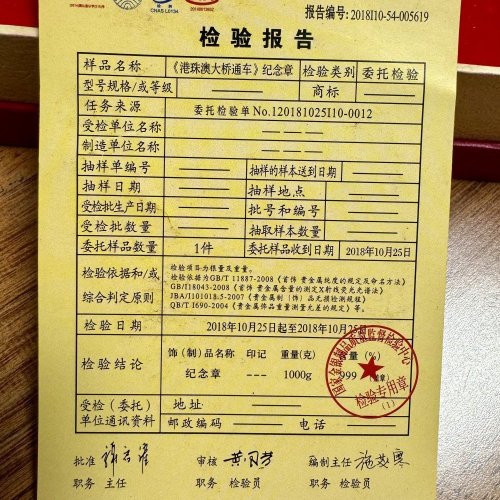 CNAS L0154
报告编号:2018I10-54-005619
检验报告
样品名称 《港珠澳大桥通车》纪念章 检验类别 委托检验
型号规格/或等级 ——— 商标 ———
任务来源 委托检验单No.120181025I10-0012
受检单位名称 ———
制造单位名称 ———
抽样单编号 ——— 抽样的样本送到日期 ———
抽样日期 ——— 抽样地点 ———
受检批生产日期 ——— 批号和编号 ———
受检批数量 ——— 抽取样本数量 ———
委托样品数量 1件 委托样品收到日期 2018年10月25日
检验依据和/或综合判定原则
检验项目为银量及重量。
检验依据为GB/T 11887-2008《首饰 贵金属纯度的规定及命名方法》
GB/T18043-2008《首饰 贵金属含量的测定X射线荧光光谱法》
JBA/I101018.5-2007《贵金属制(饰)品无损检测规程》
QB/T1690-2004《贵金属饰品质量测量允差的规定》等。
检验日期 2018年10月25日起至2018年10月25日
检验结论
饰(制)品名称 印记 重量(克) 量(%)
纪念章 —— 1000g 999 (章)
国家金银制品质量监督检验中心
检验专用章
(1)
受检(委托)单位通讯资料
地址 ———
邮政编码 ——— 电话 ———
批准 审核 编制主任
职务 主任 职务 检验员 职务 检验员